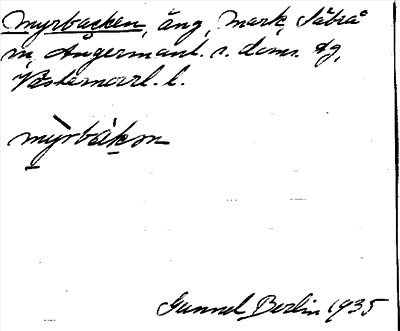 Myrbacken, äng, mark, Säbrå
sn, Ångermanl. s. doms. dg,
Västernorrl. l.
mỳrbák̠ən
Gunnel Berlin 1935